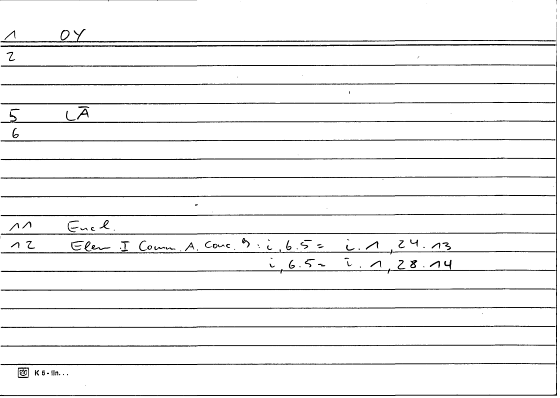 1 OY
2
5 LĀ
6
11 Eucl.
12 Elem I Comm. A. Conc. 9: i, 6.5 = i. 1, 24.13
i, 6.5 = i. 1, 28.14
K 6 - lin...